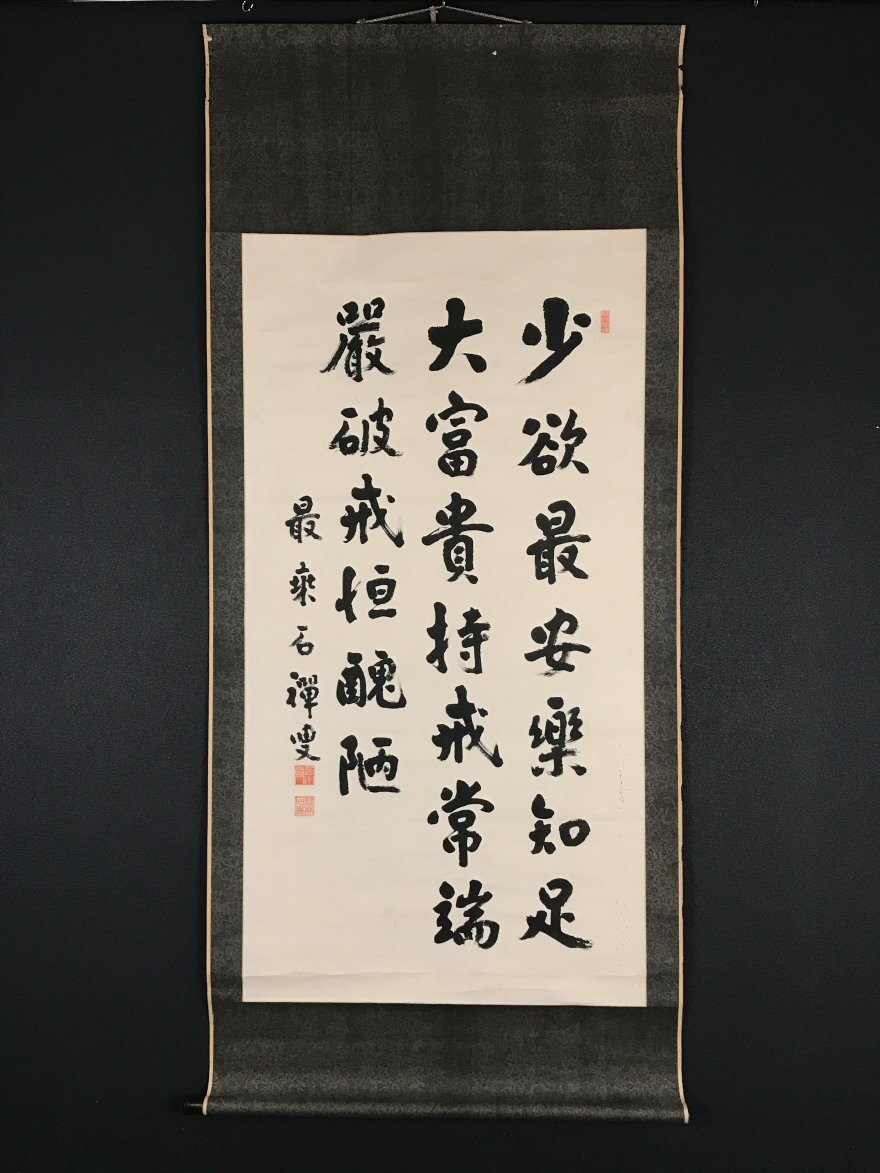 少欲最安樂知足
大富貴持戒常端
嚴破戒恒醜陋
最乘石禪叟